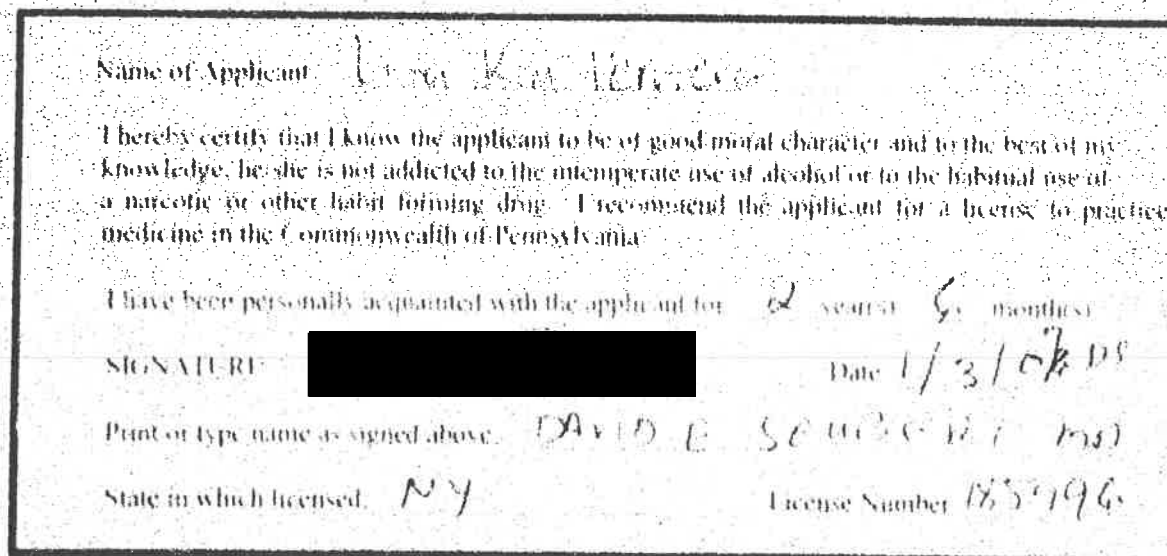 Name of Applicant
I hereby certify that I know the applicant to be of good moral character and to the best of my
knowledge, he/she is not addicted to the intemperate use of alcohol or to the habitual use of
a narcotic or other habit forming drug. I recommend the applicant for a license to practice
medicine in the Commonwealth of Pennsylvania
I have been personally acquainted with the applicant for 2 year(s) month(s)
SIGNATURE
Date 1/3/07 DS
Print or type name as signed above. DAVID E MD
State in which licensed. NY License Number